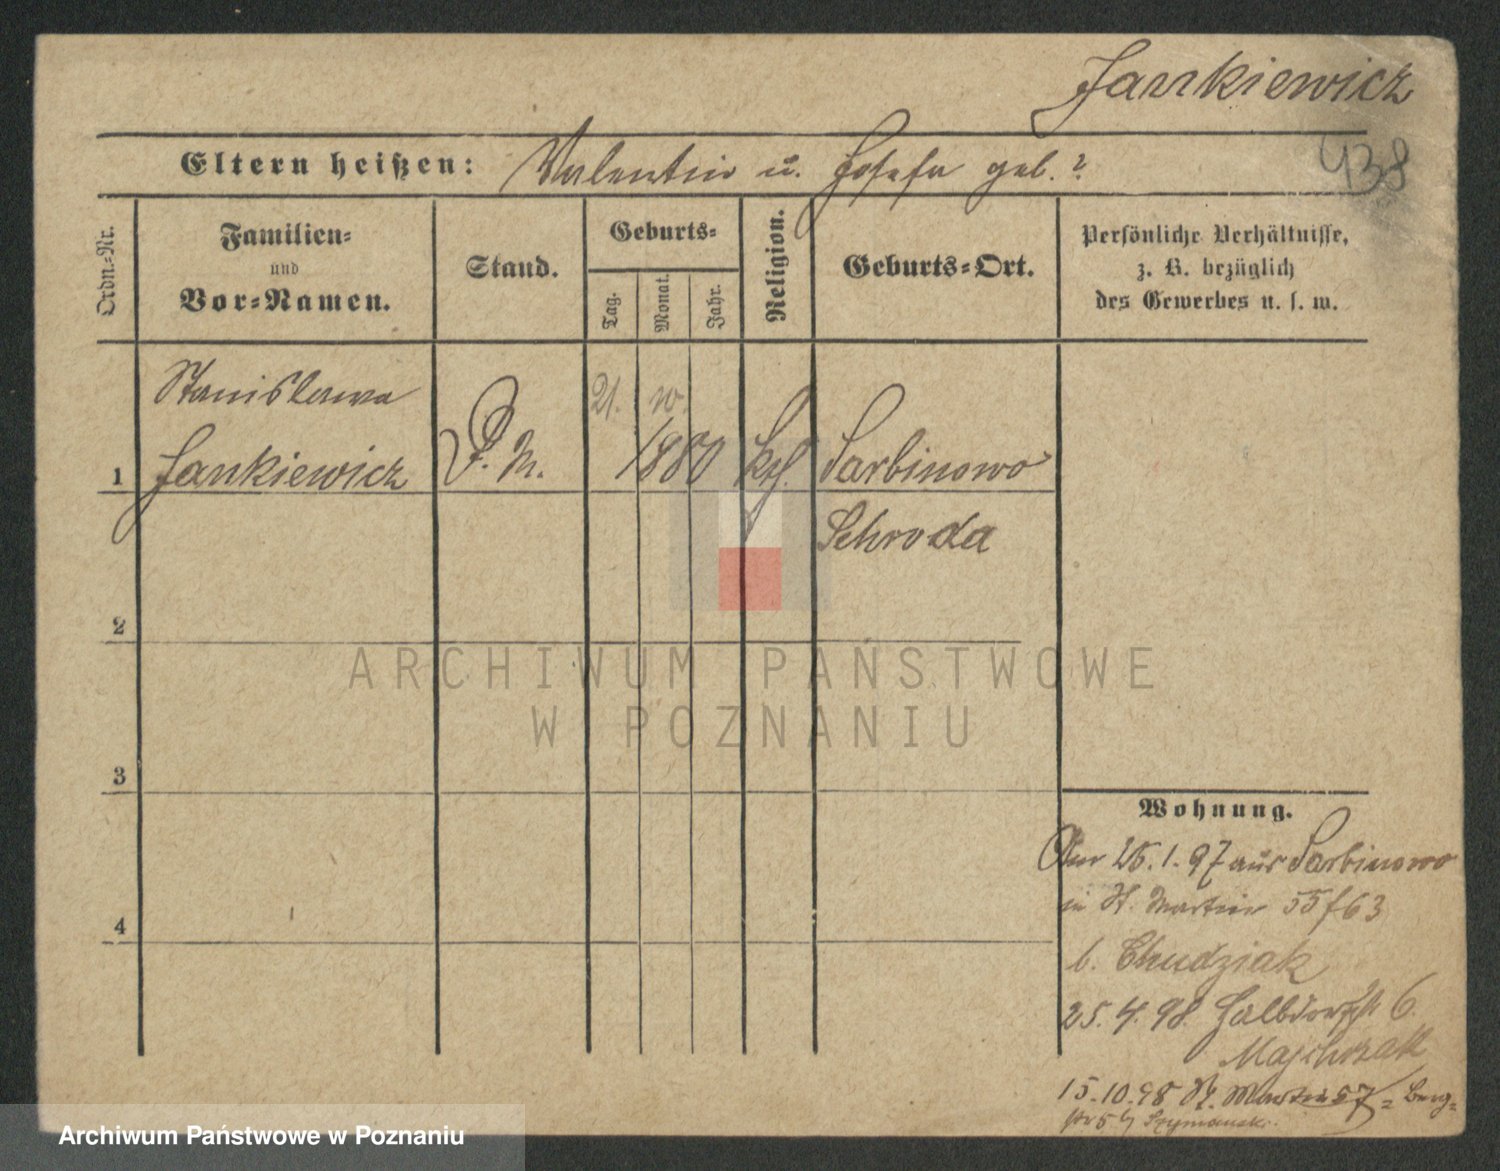 Jankiewicz
938
Eltern heißen: Valentin u. Josefa geb. ?
Ordn.=Nr.
Familien=
und
Vor=Namen.
Stand.
Geburts=
Tag.
Monat.
Jahr.
Religion.
Geburts=Ort.
Persönliche Verhältnisse,
z. B. bezüglich
des Gewerbes u. s. w.
Stanisława
1 Jankiewicz
D. M.
21.
1880
kth.
Sarbinowo
Schroda
2
3
4
Wohnung.
Am 26.1.97 aus Sarbinowo
in St. Martin 55 f 63
b. Chudziak
25.4.98 Halbdorfstr 6.
Majchrzak
15.10.98 St. Martin 57 = Berg=
str 5 b/ Szymanski.
ARCHIWUM PAŃSTWOWE
W POZNANIU
Archiwum Państwowe w Poznaniu